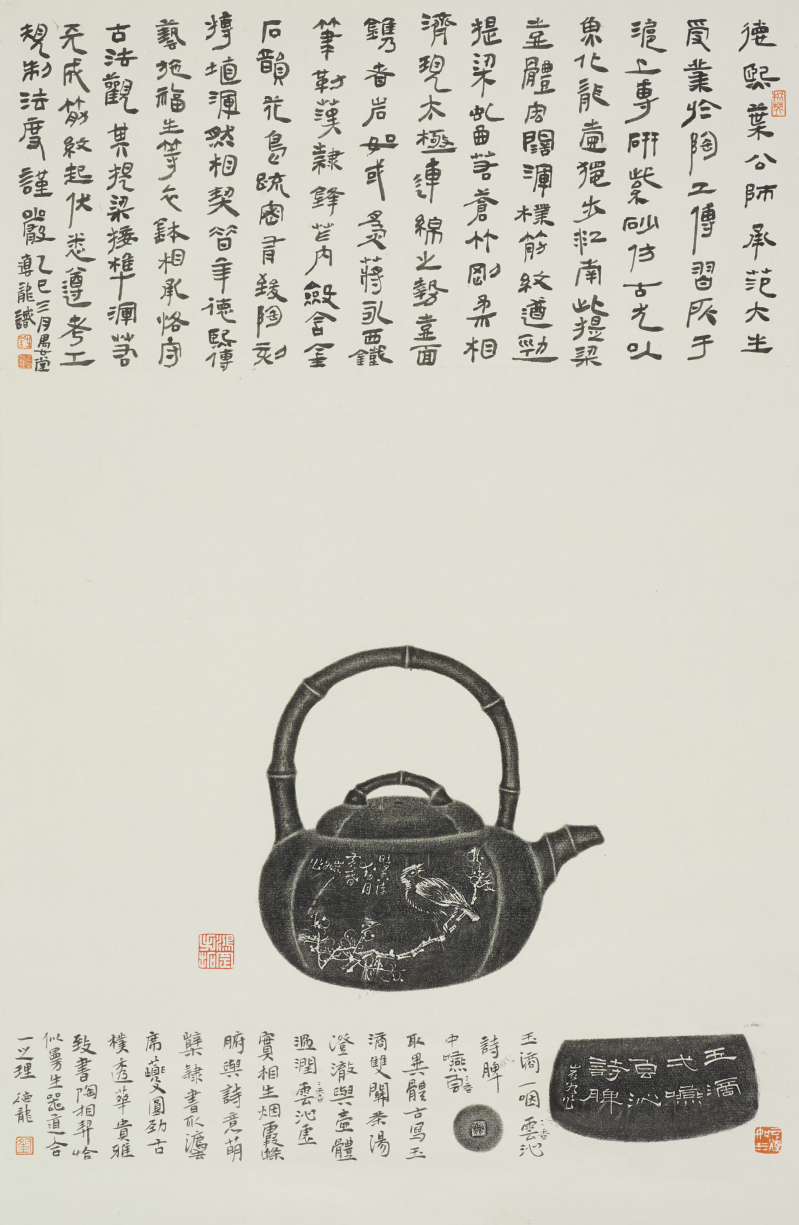 德熙葉公師承范大生
受業於陶工傳習所于
滬上專研紫砂仿古尤以
魚化龍壺獨步江南此提梁
壺體宏闊渾樸筋紋遒勁
提梁虬曲若蒼竹剛柔相
濟現太極連綿之勢壺面
鐫者岩如或是蔣永西鐵
筆勒漢隸鋒芒内斂含金
石韻花鳥疏密有致陶刻
摶埴渾然相契昔年德熙傳
藝施福生等衣鉢相承恪守
古法觀其提梁接榫渾若
天成筋紋起伏悉遵考工
規制法度謹嚴乙巳三月禺
龍識
玉滴一咽雲沁
詩脾
中嚥
取異體古寫玉
滴雙關茶湯
澄澈與壺體
溫潤雲沁虛
實相生烟霞滌
腑與詩意萌
櫱隸書取瀘
席夔文圓勁古
樸透華貴雅
致書陶相契恰
似曼生器道合
一之理 德龍
玉滴
弌嚥
沁
詩脾